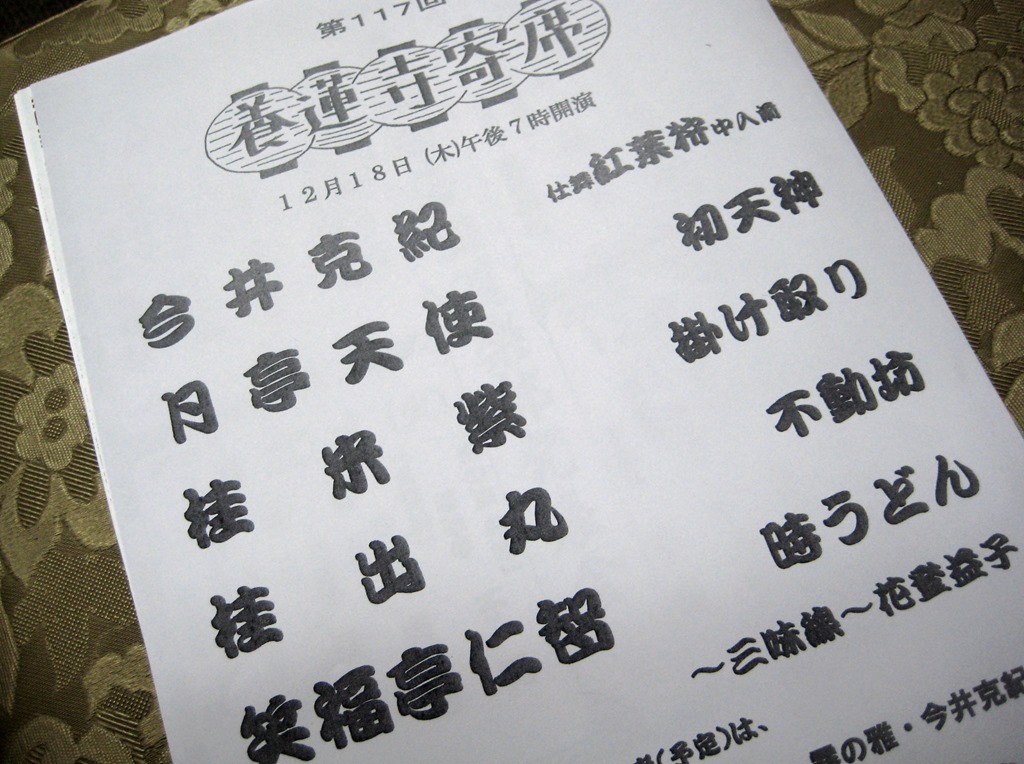 第117回
養蓮寺寄席
12月18日(木)午後7時開演
今井克紀 仕舞紅葉狩中入前
月亭天使 初天神
桂米紫 掛け取り
桂出丸 不動坊
笑福亭仁智 時うどん
～三味線～花登益子
(予定)は、
の雅・今井克紀